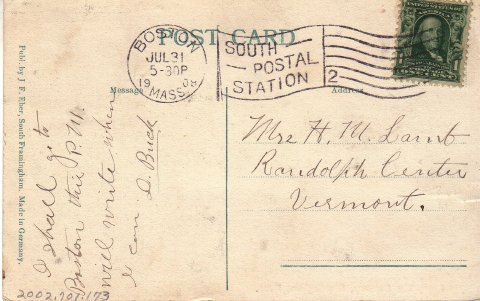 POST CARD
BOSTON
JUL 31
5-30P
1908
MASS.
SOUTH
POSTAL
STATION
2
Message
Address
Mrs H. M. Lamb
Randolph Center
Vermont.
I shall go to
Boston this P.M.
will write when
I can. D. Buck
Publ. by J. F. Eber, South Framingham. Made in Germany.
2002.707.173